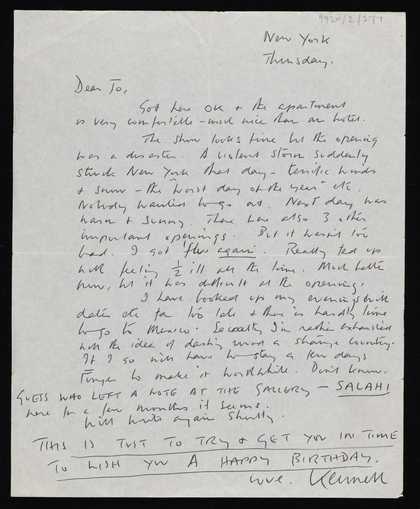 9920/2/271
New York
Thursday.
Dear Jo,
Got here OK & the apartment
is very comfortable – much nicer than an hotel.
The show looks fine but the opening
was a disaster. A violent storm suddenly
struck New York that day – terrific winds
& snow – the worst day of the year etc.
Nobody wanted to go out. Next day was
warm & sunny. There were also 3 other
important openings. But it wasn't too
bad. I got 'flu again. Really fed up
with feeling ½ ill all the time. Much better
now, but it was difficult at the opening.
I have booked up my evenings with
dates etc far too late & there is hardly time
to go to Mexico. Secondly I'm rather exhausted
with the idea of dashing round a strange country.
If I go will have to stay a few days
longer to make it worthwhile. Don't know.
GUESS WHO LEFT A NOTE AT THE GALLERY – SALAHI
here for a few months it seems.
Will write again shortly.
THIS IS JUST TO TRY & GET YOU IN TIME
TO WISH YOU A HAPPY BIRTHDAY.
love. Kenneth